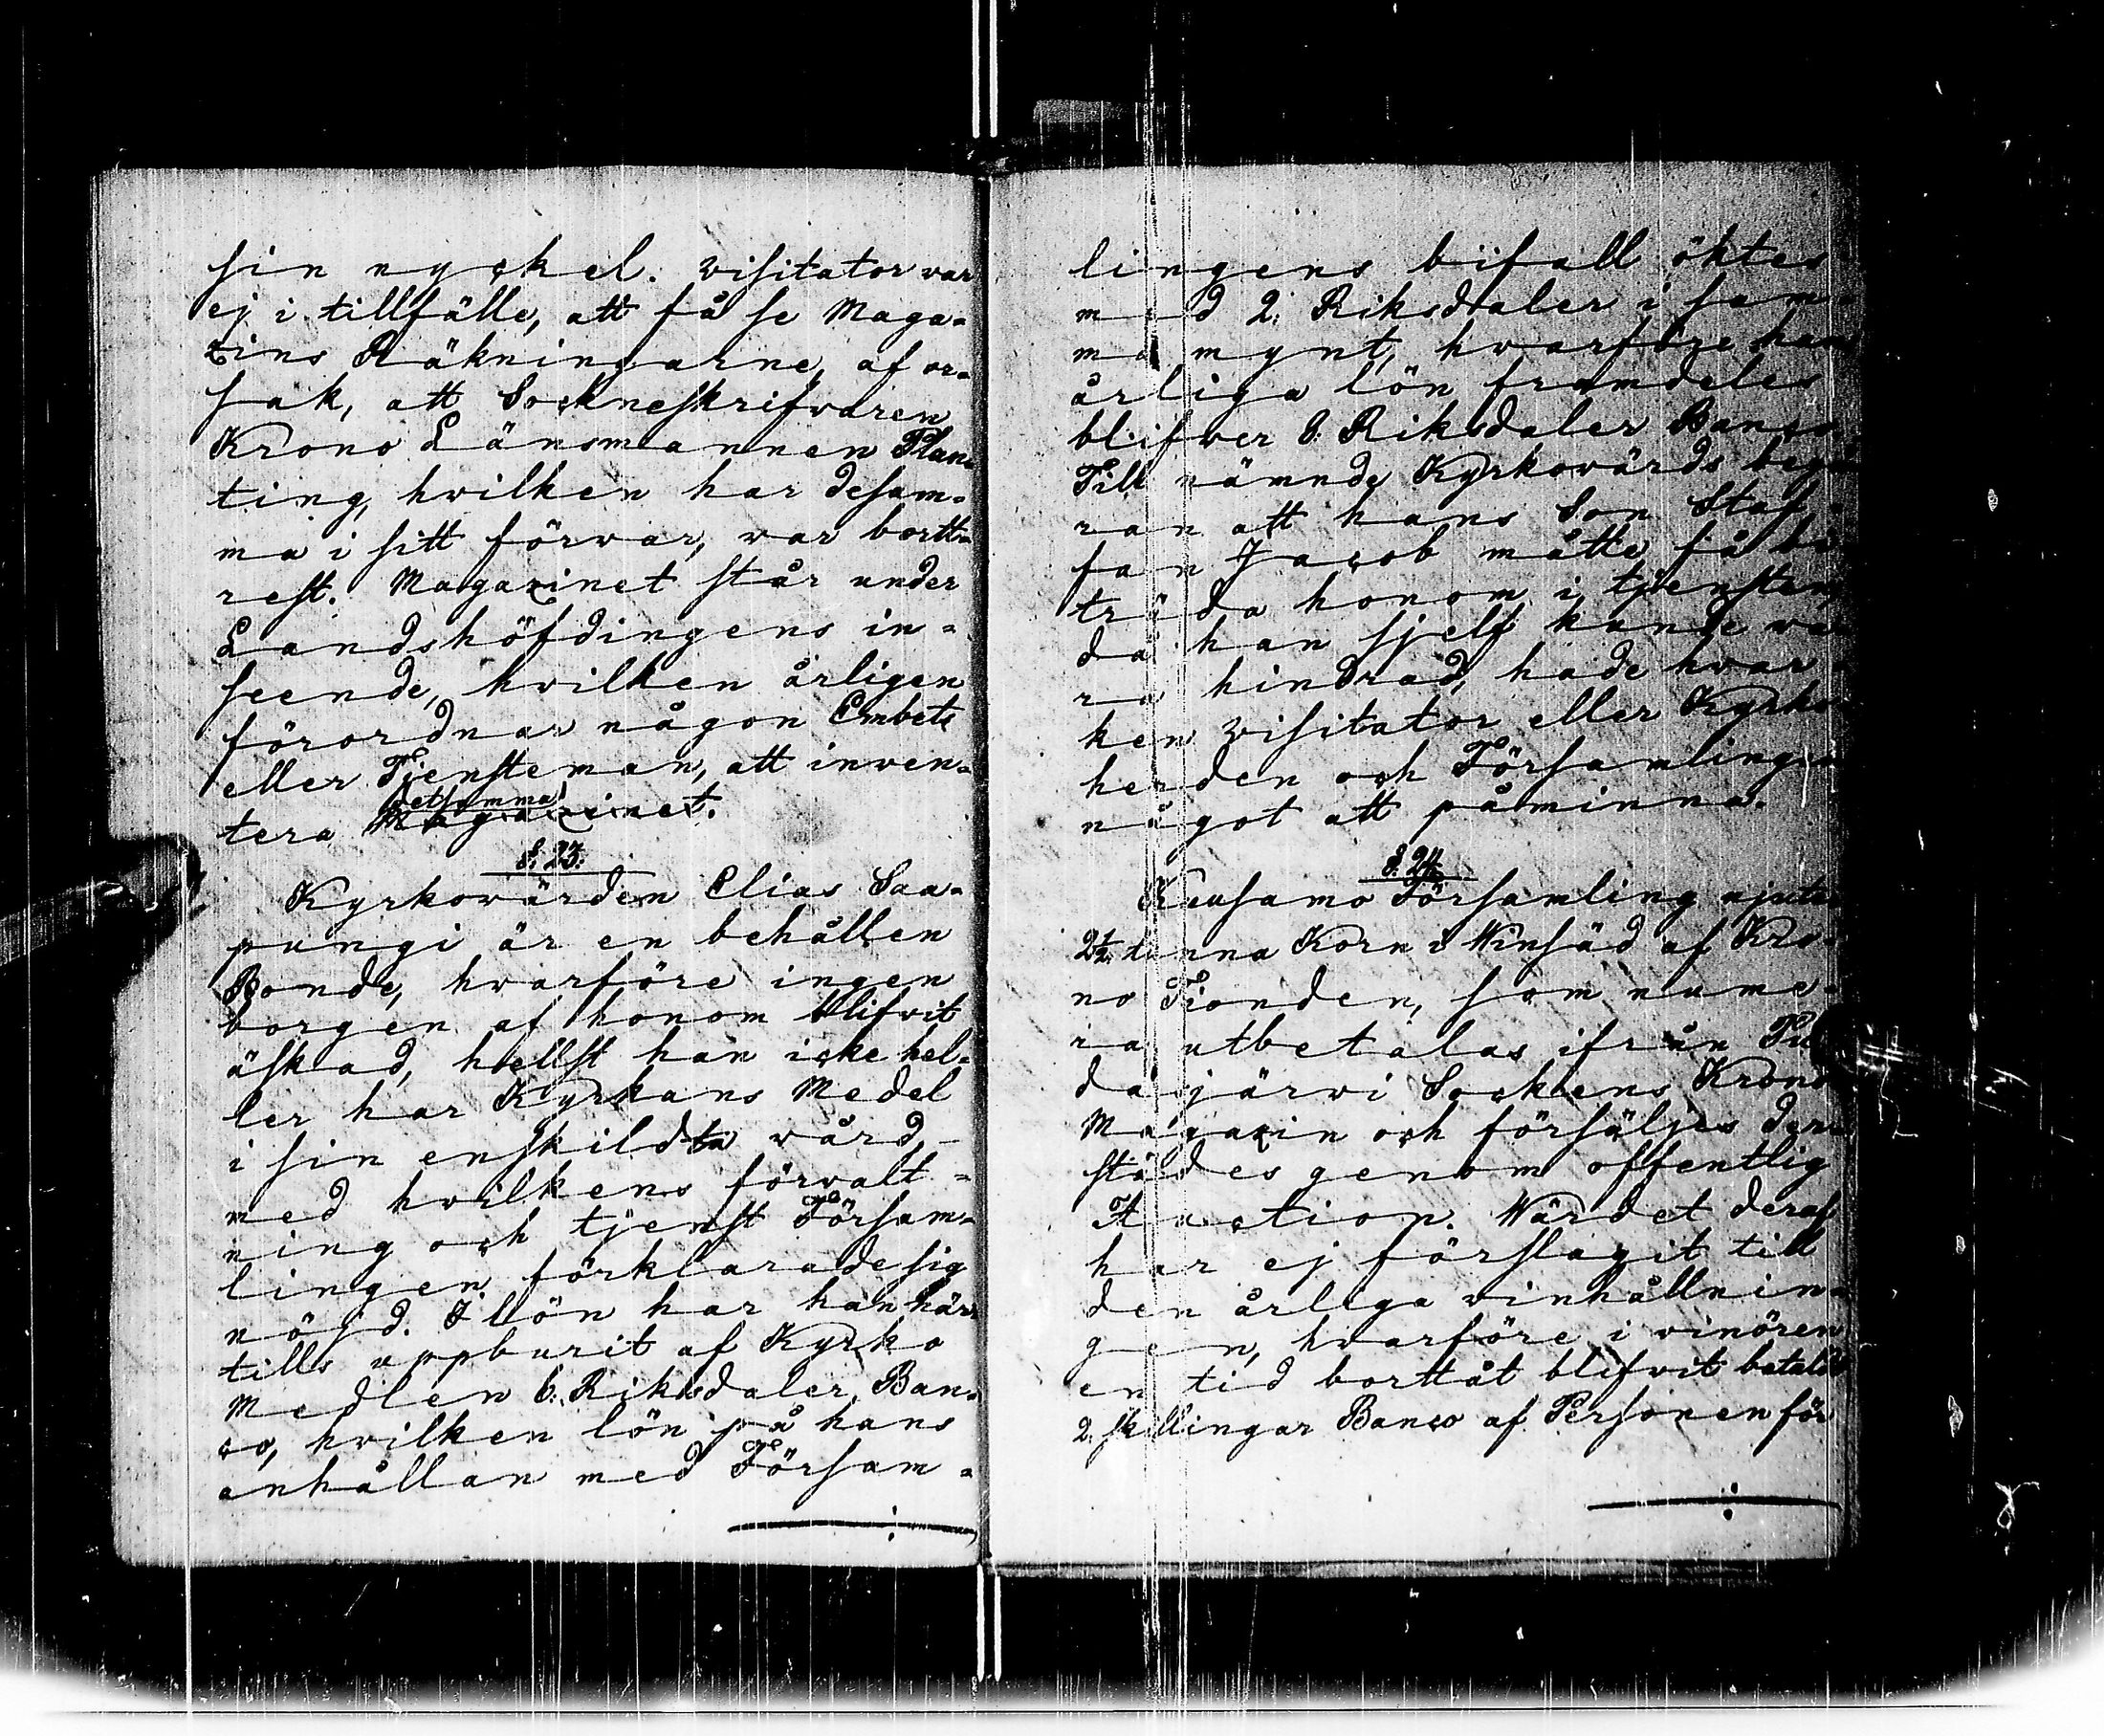 sin nyckel. Visitator var
ej i tillfälle, att få se Maga=
zins Räkningarne, af or=
sak, att Sockneskrifvaren
Krono Länsmannen Plan=
ting, hvilken har desam=
ma i sitt förvar, var bortt=
rest. Magazinet står under
Landshöfdingens in=
seende, hvilken årligen
förordnar någon Embets
eller Tjensteman, att inven=
detsamma
tera Magazinet.
§. 23.
Kyrkovärden Elias Saa=
pungi är en behållen
Bonde, hvarföre ingen
borgen af honom blifvit
äskad, hellst han icke hel=
ler har Kyrkans Medel
i sin enskildta vård,
med hvilkens förvalt=
ning och tjenst Försam=
lingen förklarade sig
nöjd. I lön har han här
tills uppburit af Kyrko
Medlen 6. Riksdaler Ban=
co, hvilken lön på hans
anhållan med Försam=
lingens bifall öktes
med 2. Riksdaler i sam=
ma mynt, hvarföre hans
årliga lön framdeles
blifver 8. Riksdaler Banco.
Till nämnde Kyrkovärds begä
ran att hans Son Staf=
fan Jacob måtte få bi
träda honom i tjensten,
då han sjelf kunde va
ra hindrad, hade hvar=
ken Visitator eller Kyrko
herden och Församlingen
något att påminna.
§. 24.
Kuusamo Församling njuter
2½ tunna Korn i Vinsäd af Kro=
no Tionden, som nume=
ra utbetalas ifrån Pu
dasjärvi Sockens Krono
Magazin och försäljes der
städes genom offentlig
Auction. Värdet deraf
har ej förslagit till
den årliga vinhållnin=
gen, hvarföre i vinören
en tid borttåt blifvit betalt
2. skillingar Banco af Personen för